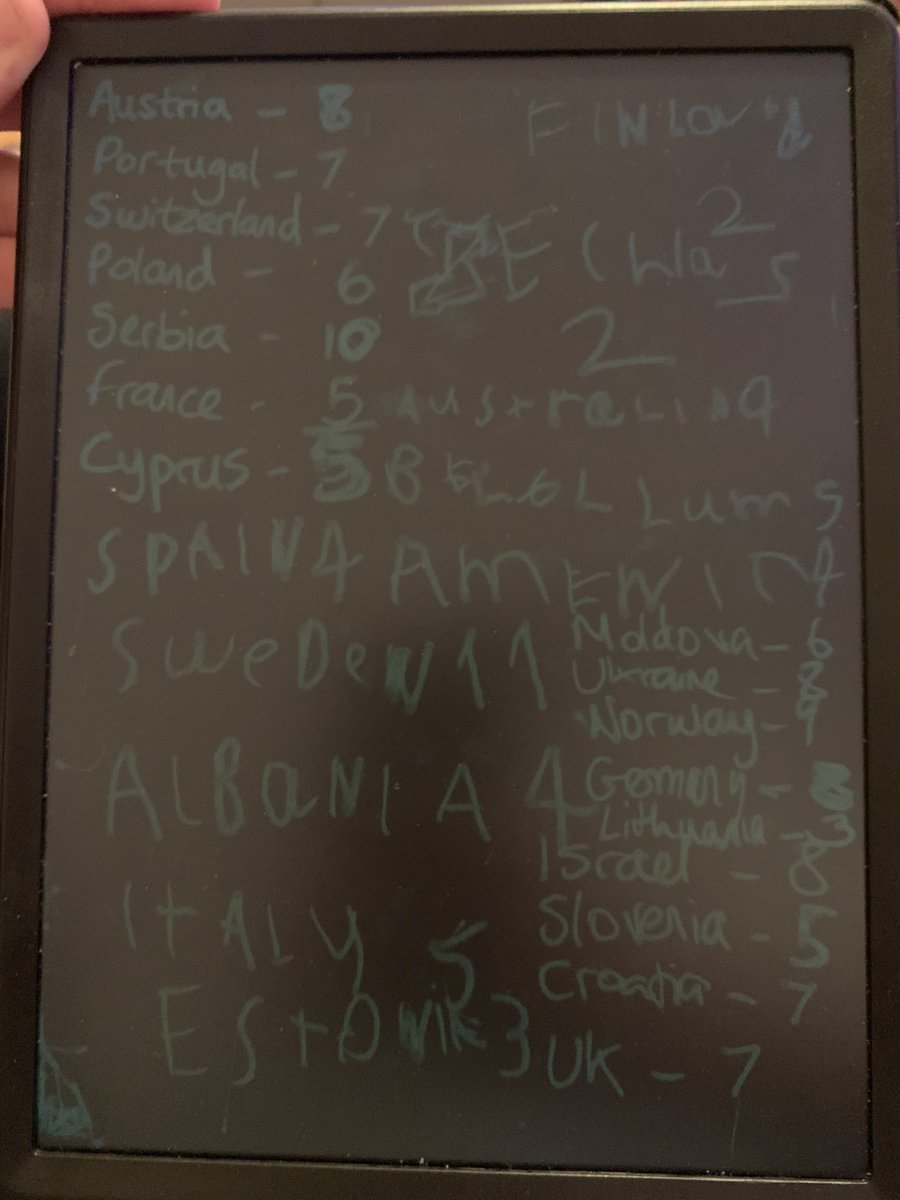 Austria - 8
Portugal - 7
Switzerland - 7
Poland - 6
Serbia - 10
France - 5
Cyprus - 5
SPAIN 4
SweDeN 11
AlBaNIA 4
ItALY 5
EStONiE 3
FINLaNd
2
5
2
AUStreLIA 9
LUm 5
AmENIA 4
Moldova - 6
Ukraine - 8
Norway - 9
Germany - 8
Lithuania - 3
Israel - 8
Slovenia - 5
Croatia - 7
UK - 7